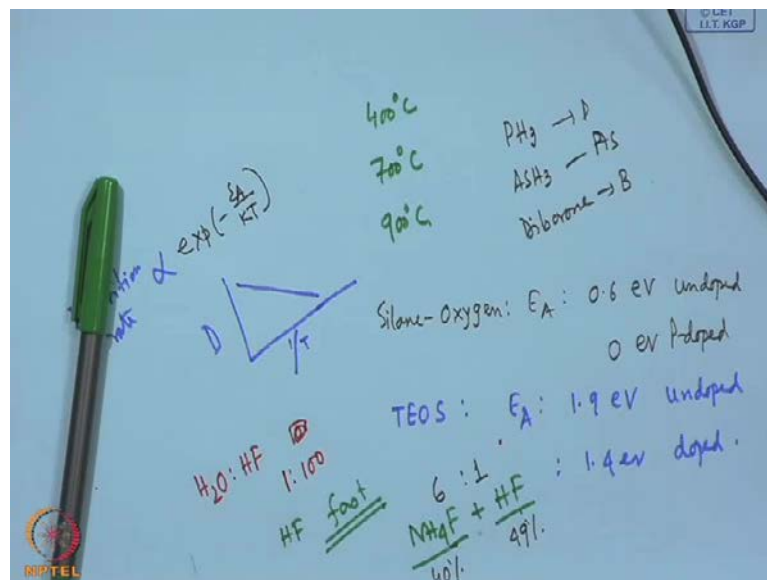 © CET
I.I.T. KGP
400°C
700°C
900°C
PH3 → P
ASH3 — AS
Diborane → B
rate α exp(-EA/KT)
D
1/T
Silane-Oxygen: EA: 0.6 eV undoped
0 eV P-doped
TEOS: EA: 1.9 eV undoped
: 1.4 eV doped.
H2O:HF
1:100
HF fast
6:1
NH4F + HF
40% 49%.
NPTEL